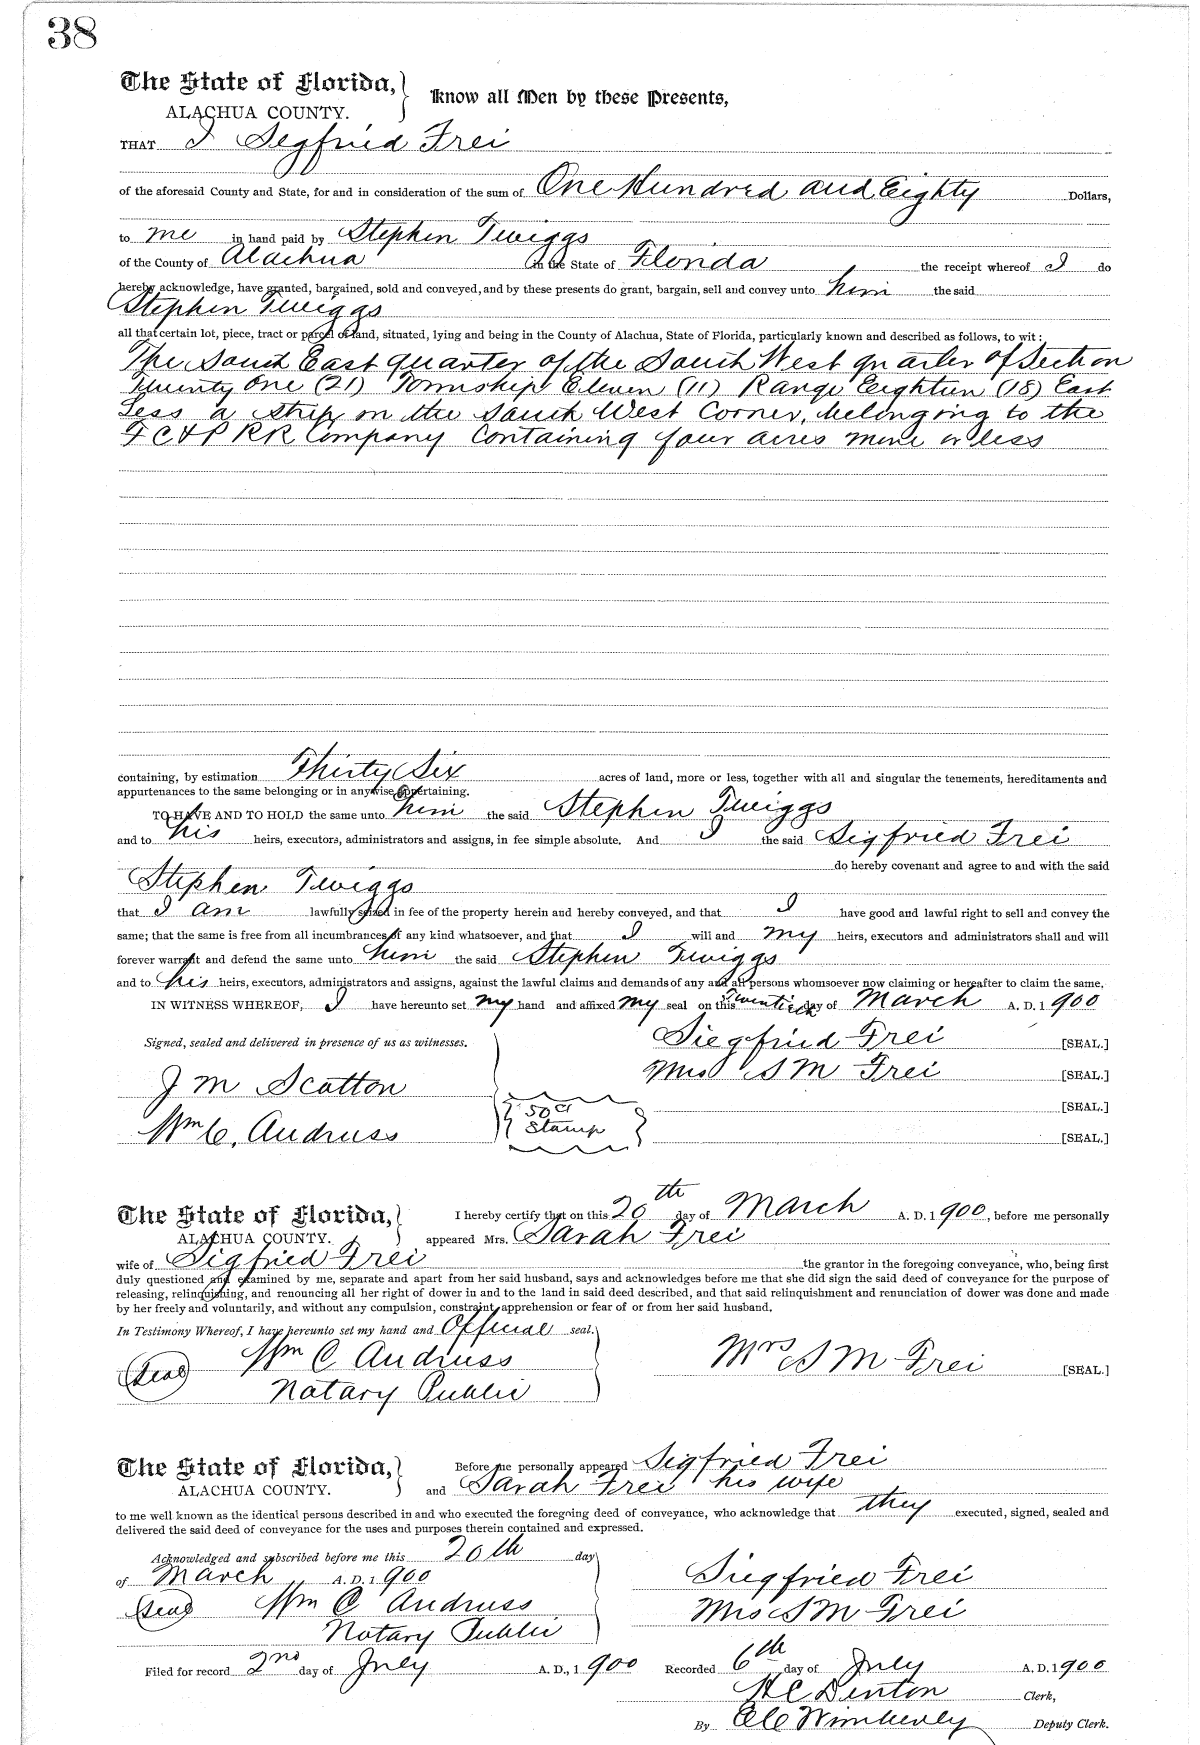 38
The State of Florida, } Know all Men by these Presents,
ALACHUA COUNTY.
THAT I Segfried Frei
of the aforesaid County and State, for and in consideration of the sum of One Hundred and Eighty Dollars,
to me in hand paid by Stephen Twiggs
of the County of Alachua in the State of Florida the receipt whereof I do
hereby acknowledge, have granted, bargained, sold and conveyed, and by these presents do grant, bargain, sell and convey unto him the said
Stephen Twiggs
all that certain lot, piece, tract or parcel of land, situated, lying and being in the County of Alachua, State of Florida, particularly known and described as follows, to wit:
The South East quarter of the South West quarter of Section
Twenty One (21) Township Eleven (11) Range Eighteen (18) East
Less a strip on the South West Corner, belonging to the
F C & P RR Company Containing four acres more or less
containing, by estimation Thirty Six acres of land, more or less, together with all and singular the tenements, hereditaments and
appurtenances to the same belonging or in anywise appertaining.
TO HAVE AND TO HOLD the same unto him the said Stephen Twiggs
and to his heirs, executors, administrators and assigns, in fee simple absolute. And I the said Sigfried Frei
do hereby covenant and agree to and with the said
Stephen Twiggs
that I am lawfully seized in fee of the property herein and hereby conveyed, and that I have good and lawful right to sell and convey the
same; that the same is free from all incumbrances of any kind whatsoever, and that I will and my heirs, executors and administrators shall and will
forever warrant and defend the same unto him the said Stephen Twiggs
and to his heirs, executors, administrators and assigns, against the lawful claims and demands of any and all persons whomsoever now claiming or hereafter to claim the same.
IN WITNESS WHEREOF, I have hereunto set my hand and affixed my seal on this Twentieth day of March A. D. 1900
Signed, sealed and delivered in presence of us as witnesses. Siegfried Frei [SEAL.]
Mrs S M Frei [SEAL.]
J M Scatton [SEAL.]
50 ct Stamp
Wm C. Andruss [SEAL.]
The State of Florida, } I hereby certify that on this 20th day of March A. D. 1900, before me personally
ALACHUA COUNTY. appeared Mrs. Sarah Frei
wife of Sigfried Frei the grantor in the foregoing conveyance, who, being first
duly questioned and examined by me, separate and apart from her said husband, says and acknowledges before me that she did sign the said deed of conveyance for the purpose of
releasing, relinquishing, and renouncing all her right of dower in and to the land in said deed described, and that said relinquishment and renunciation of dower was done and made
by her freely and voluntarily, and without any compulsion, constraint, apprehension or fear of or from her said husband.
In Testimony Whereof, I have hereunto set my hand and Official seal.
(Seal) Wm C Andruss Mrs S M Frei [SEAL.]
Notary Public
The State of Florida, } Before me personally appeared Sigfried Frei
ALACHUA COUNTY. and Sarah Frei his wife
to me well known as the identical persons described in and who executed the foregoing deed of conveyance, who acknowledge that they executed, signed, sealed and
delivered the said deed of conveyance for the uses and purposes therein contained and expressed.
Acknowledged and subscribed before me this 20th day
of March A. D. 1900 Siegfried Frei
(Seal) Wm C Andruss Mrs S M Frei
Notary Public
Filed for record 2nd day of July A. D., 1900 Recorded 6th day of July A. D. 1900
H C Denton Clerk,
By E C Wimberly Deputy Clerk.